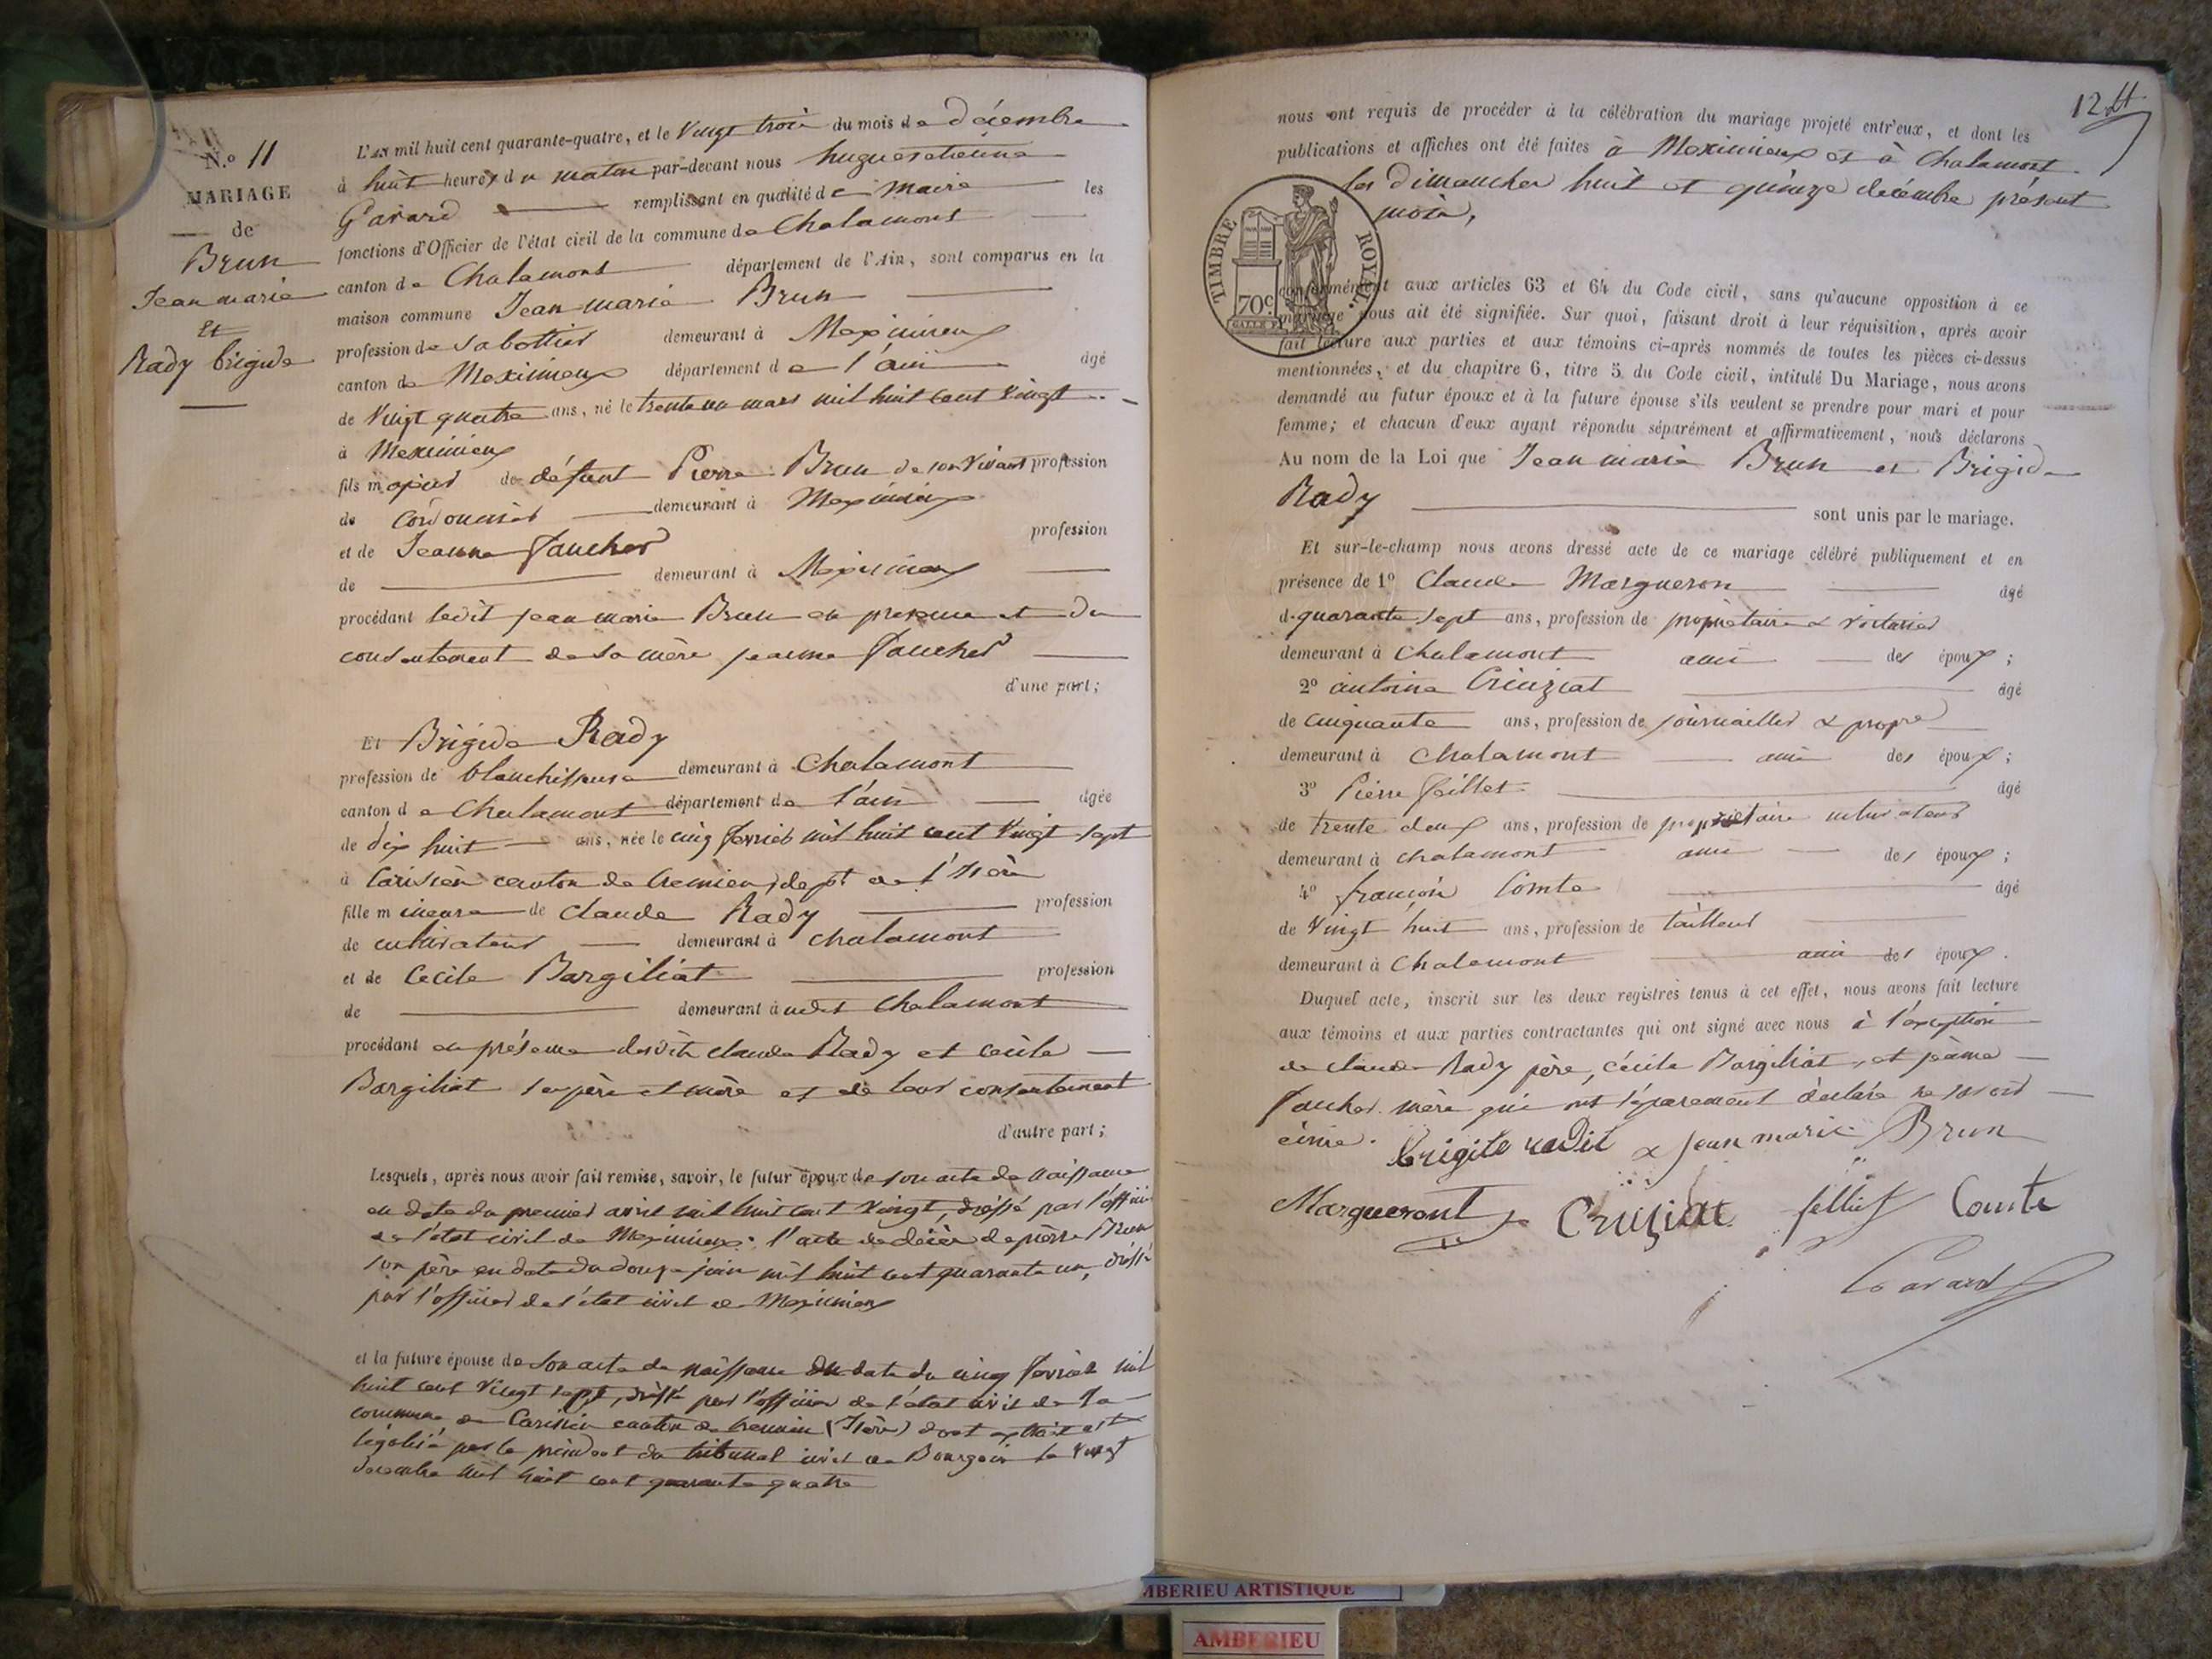 N.o 11
MARIAGE
de
Brun
Jean marie
Et
Rady brigide
L'AN mil huit cent quarante-quatre, et le Vingt trois du mois de décembre
à huit heures du matin par-devant nous hugues etienne
Gavard remplissant en qualité de Maire les
fonctions d'Officier de l'état civil de la commune de Chalamont
canton de Chalamont département de l'Ain, sont comparus en la
maison commune Jean marie Brun
profession de Sabottier demeurant à Meximieux
canton de Meximieux département de l'ain âgé
de Vingt quatre ans, né le trente un mars mil huit cent Vingt
à Meximieux
fils majeur de défunt Pierre Brun de son Vivant profession
de cordonnier demeurant à Meximieux
et de Jeanne Faucher profession
de demeurant à Meximieux
procédant ledit jean marie Brun en presence et du
consentement de sa mère jeanne Faucher
d'une part;
Et Brigide Rady
profession de blanchisseuse demeurant à Chalamont
canton de Chalamont département de l'ain âgée
de dix huit ans, née le cinq fevrier mil huit cent Vingt sept
à Carisieu canton de Cremieu, dept de l'Isère
fille mineure de Claude Rady profession
de cultivateur demeurant à Chalamont
et de Cecile Bargiliat profession
de demeurant à udit Chalamont
procédant en présence desdits claude Rady et Cécile
Bargiliat ses père et mère et de leur consentement
d'autre part;
Lesquels, après nous avoir fait remise, savoir, le futur époux de son acte de naissance
en date du premier avril mil huit cent Vingt, dréssé par l'officier
de l'état civil de Meximieux: l'acte de décès de pierre Brun
son père en date du douze juin mil huit cent quarante un, dréssé
par l'officier de l'état civil de Meximieux
et la future épouse de son acte de naissance en date du cinq fevrier mil
huit cent Vingt sept, dréssé par l'officier de l'état civil de la
commune de Carisieu canton de Cremieu (Isère) dont extrait est
légalisé par le président du tribunal civil de Bourgoin le Vingt
decembre mil huit cent quarante quatre
12
nous ont requis de procéder à la célébration du mariage projeté entr'eux, et dont les
publications et affiches ont été faites à Meximieux et à Chalamont
les dimanches huit et quinze décembre présent
mois,
TIMBRE ROYAL.
70 c.
conformément aux articles 63 et 64 du Code civil, sans qu'aucune opposition à ce
mariage nous ait été signifiée. Sur quoi, faisant droit à leur réquisition, après avoir
fait lecture aux parties et aux témoins ci-après nommés de toutes les pièces ci-dessus
mentionnées, et du chapitre 6, titre 5 du Code civil, intitulé Du Mariage, nous avons
demandé au futur époux et à la future épouse s'ils veulent se prendre pour mari et pour
femme; et chacun d'eux ayant répondu séparément et affirmativement, nous déclarons
Au nom de la Loi que Jean marie Brun et Brigide
Rady sont unis par le mariage.
Et sur-le-champ nous avons dressé acte de ce mariage célébré publiquement et en
présence de 1o Claude Margueron âgé
de quarante sept ans, profession de propriétaire & voiturier
demeurant à Chalamont ami des époux;
2o antoine Cruiziat âgé
de cinquante ans, profession de journaillier & propre
demeurant à Chalamont ami des époux;
3o Pierre feillet âgé
de trente deux ans, profession de propriétaire cultivateur
demeurant à chalamont ami des époux;
4o françois Comte âgé
de Vingt huit ans, profession de tailleur
demeurant à Chalamont ami des époux.
Duquel acte, inscrit sur les deux registres tenus à cet effet, nous avons fait lecture
aux témoins et aux parties contractantes qui ont signé avec nous à l'exception
de claude Rady père, cécile Bargiliat, et jeanne
Faucher mère qui ont séparement déclaré ne savoir
écrire. brigite radit & jean marie Brun
Margueront Cruziat felliet Comte
Gavard
AMBERIEU ARTISTIQUE
AMBERIEU